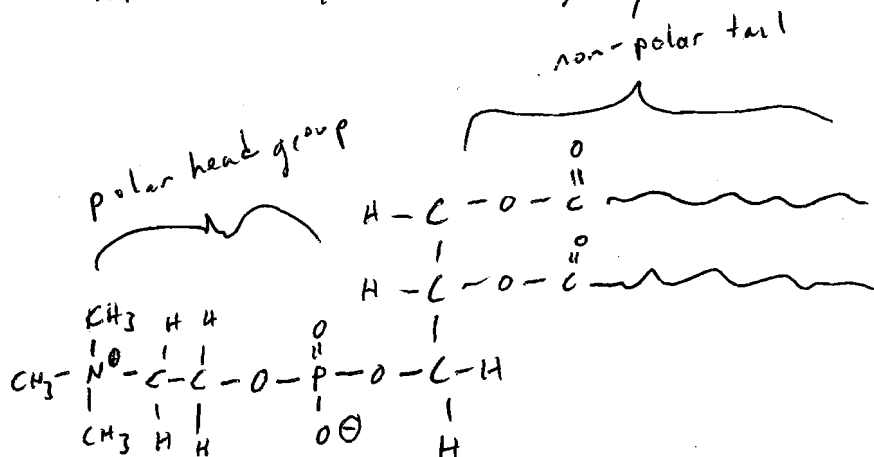 non-polar tail
polar head group
O
||
H - C - O - C
|
O
||
H - C - O - C
|
CH3 H H O
| | | ||
CH3 - N⊕ - C - C - O - P - O - C - H
| | | | |
CH3 H H O⊖ H